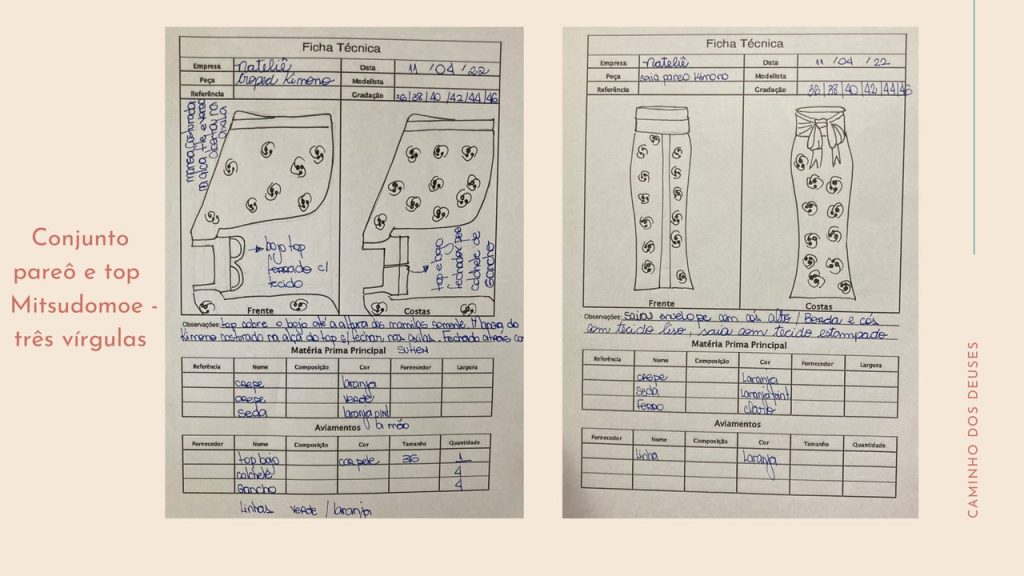 Conjunto
pareô e top
Mitsudomoe -
três vírgulas
Ficha Técnica
Empresa Nateliê Data 11 / 04 / 22
Peça Croped Kimono Modelista
Referência Gradação 36/38/40/42/44/46
manga costurada
na alça
bojo top
forrado c/
tecido
top e bojo
fechador por
colchete de
gancho
Frente Costas
Observações: top sobre o bojo até a altura dos mamilos somente. Manga do
Kimono costurado na alça do top s/ fechar nas axilas. Fechado atrás co
Matéria Prima Principal SUTIEN
Referência Nome Composição Cor Fornecedor Largura
crepe laranja
crepe VERDE
seda laranja pint
à mão
Aviamentos
Fornecedor Nome Composição Cor Tamanho Quantidade
top bojo cor pele 36 1
colchete 4
Gancho 4
linhas VERDE / laranja
Ficha Técnica
Empresa Nateliê Data 11 / 04 / 22
Peça saia pareo Kimono Modelista
Referência Gradação 36/38/40/42/44/46
Frente Costas
Observações: saias envelope com cós alto / Borda e cós
com tecido liso, saia com tecido estampado
Matéria Prima Principal
Referência Nome Composição Cor Fornecedor Largura
CREPE Laranja
Seda Laranja pint
Forro claro
Aviamentos
Fornecedor Nome Composição Cor Tamanho Quantidade
linha Laranja
CAMINHO DOS DEUSES